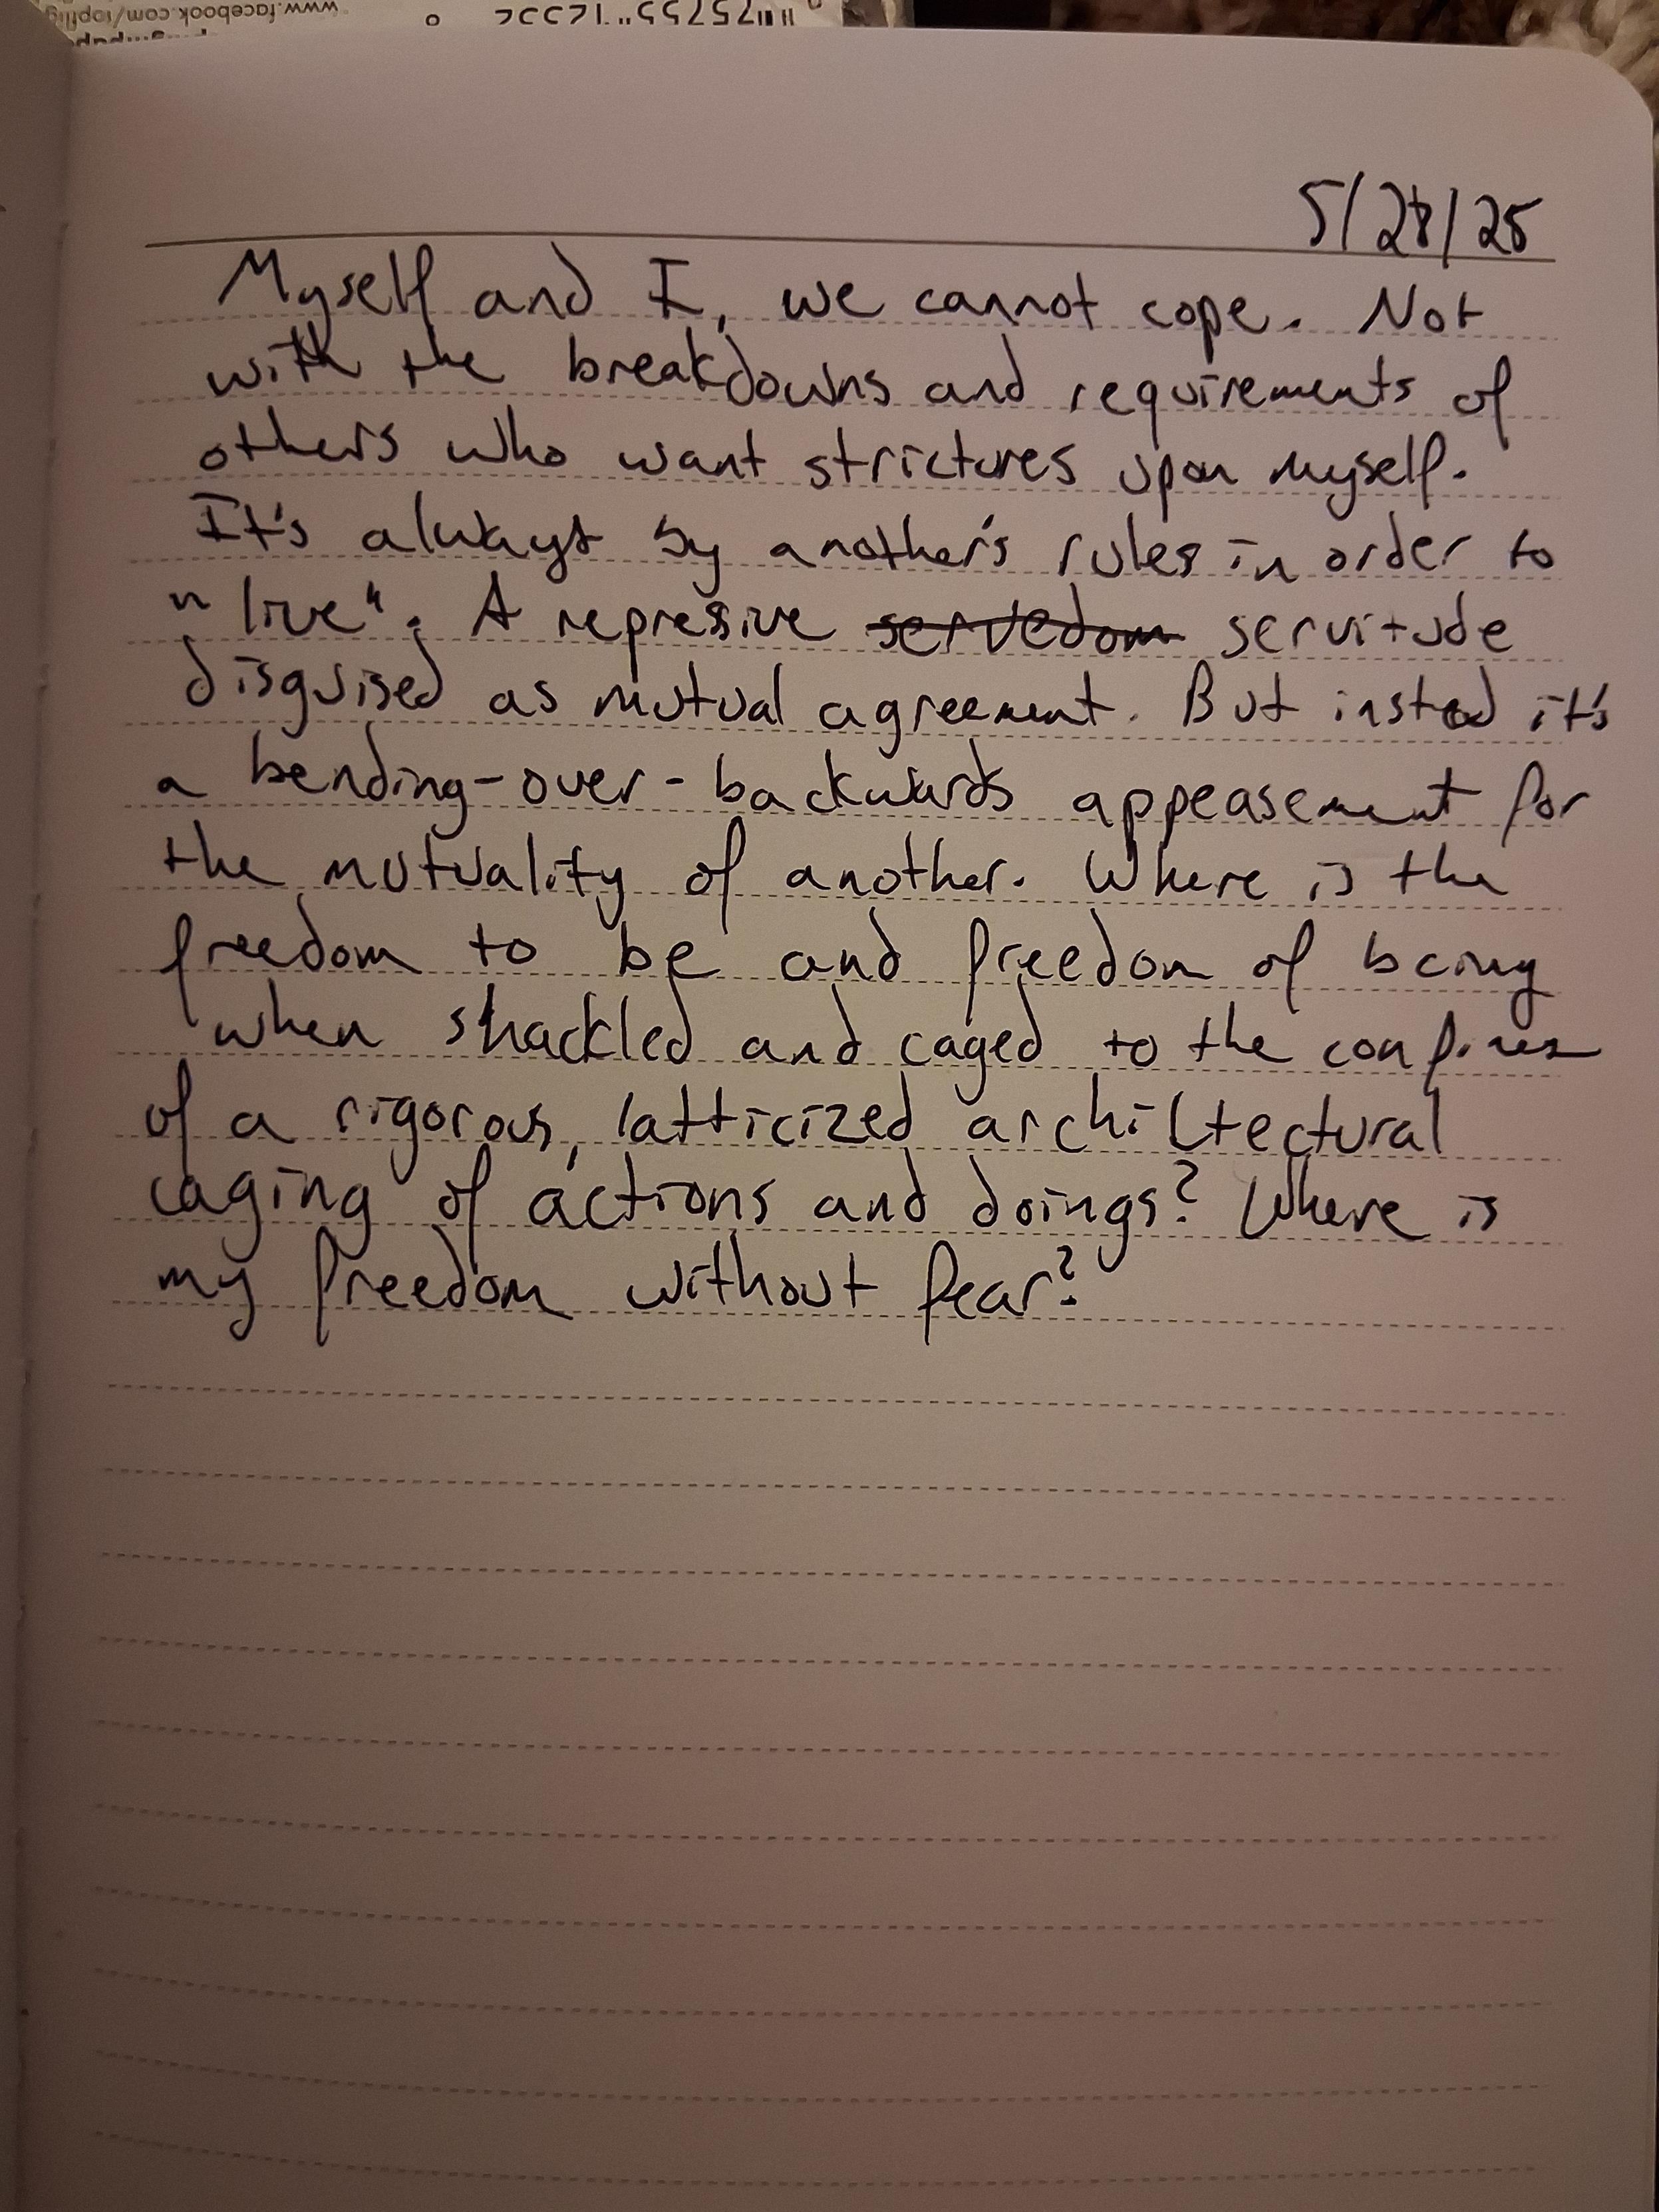 www.facebook.com/topflig
5/28/25
Myself and I, we cannot cope. Not
with the breakdowns and requirements of
others who want strictures upon myself.
It's always by another's rules in order to
"live". A repressive servedom servitude
disguised as mutual agreement. But instead it's
a bending-over-backwards appeasement for
the mutuality of another. Where is the
freedom to be and freedom of being
when shackled and caged to the confines
of a rigorous, latticized architectural
caging of actions and doings? Where is
my freedom without fear?